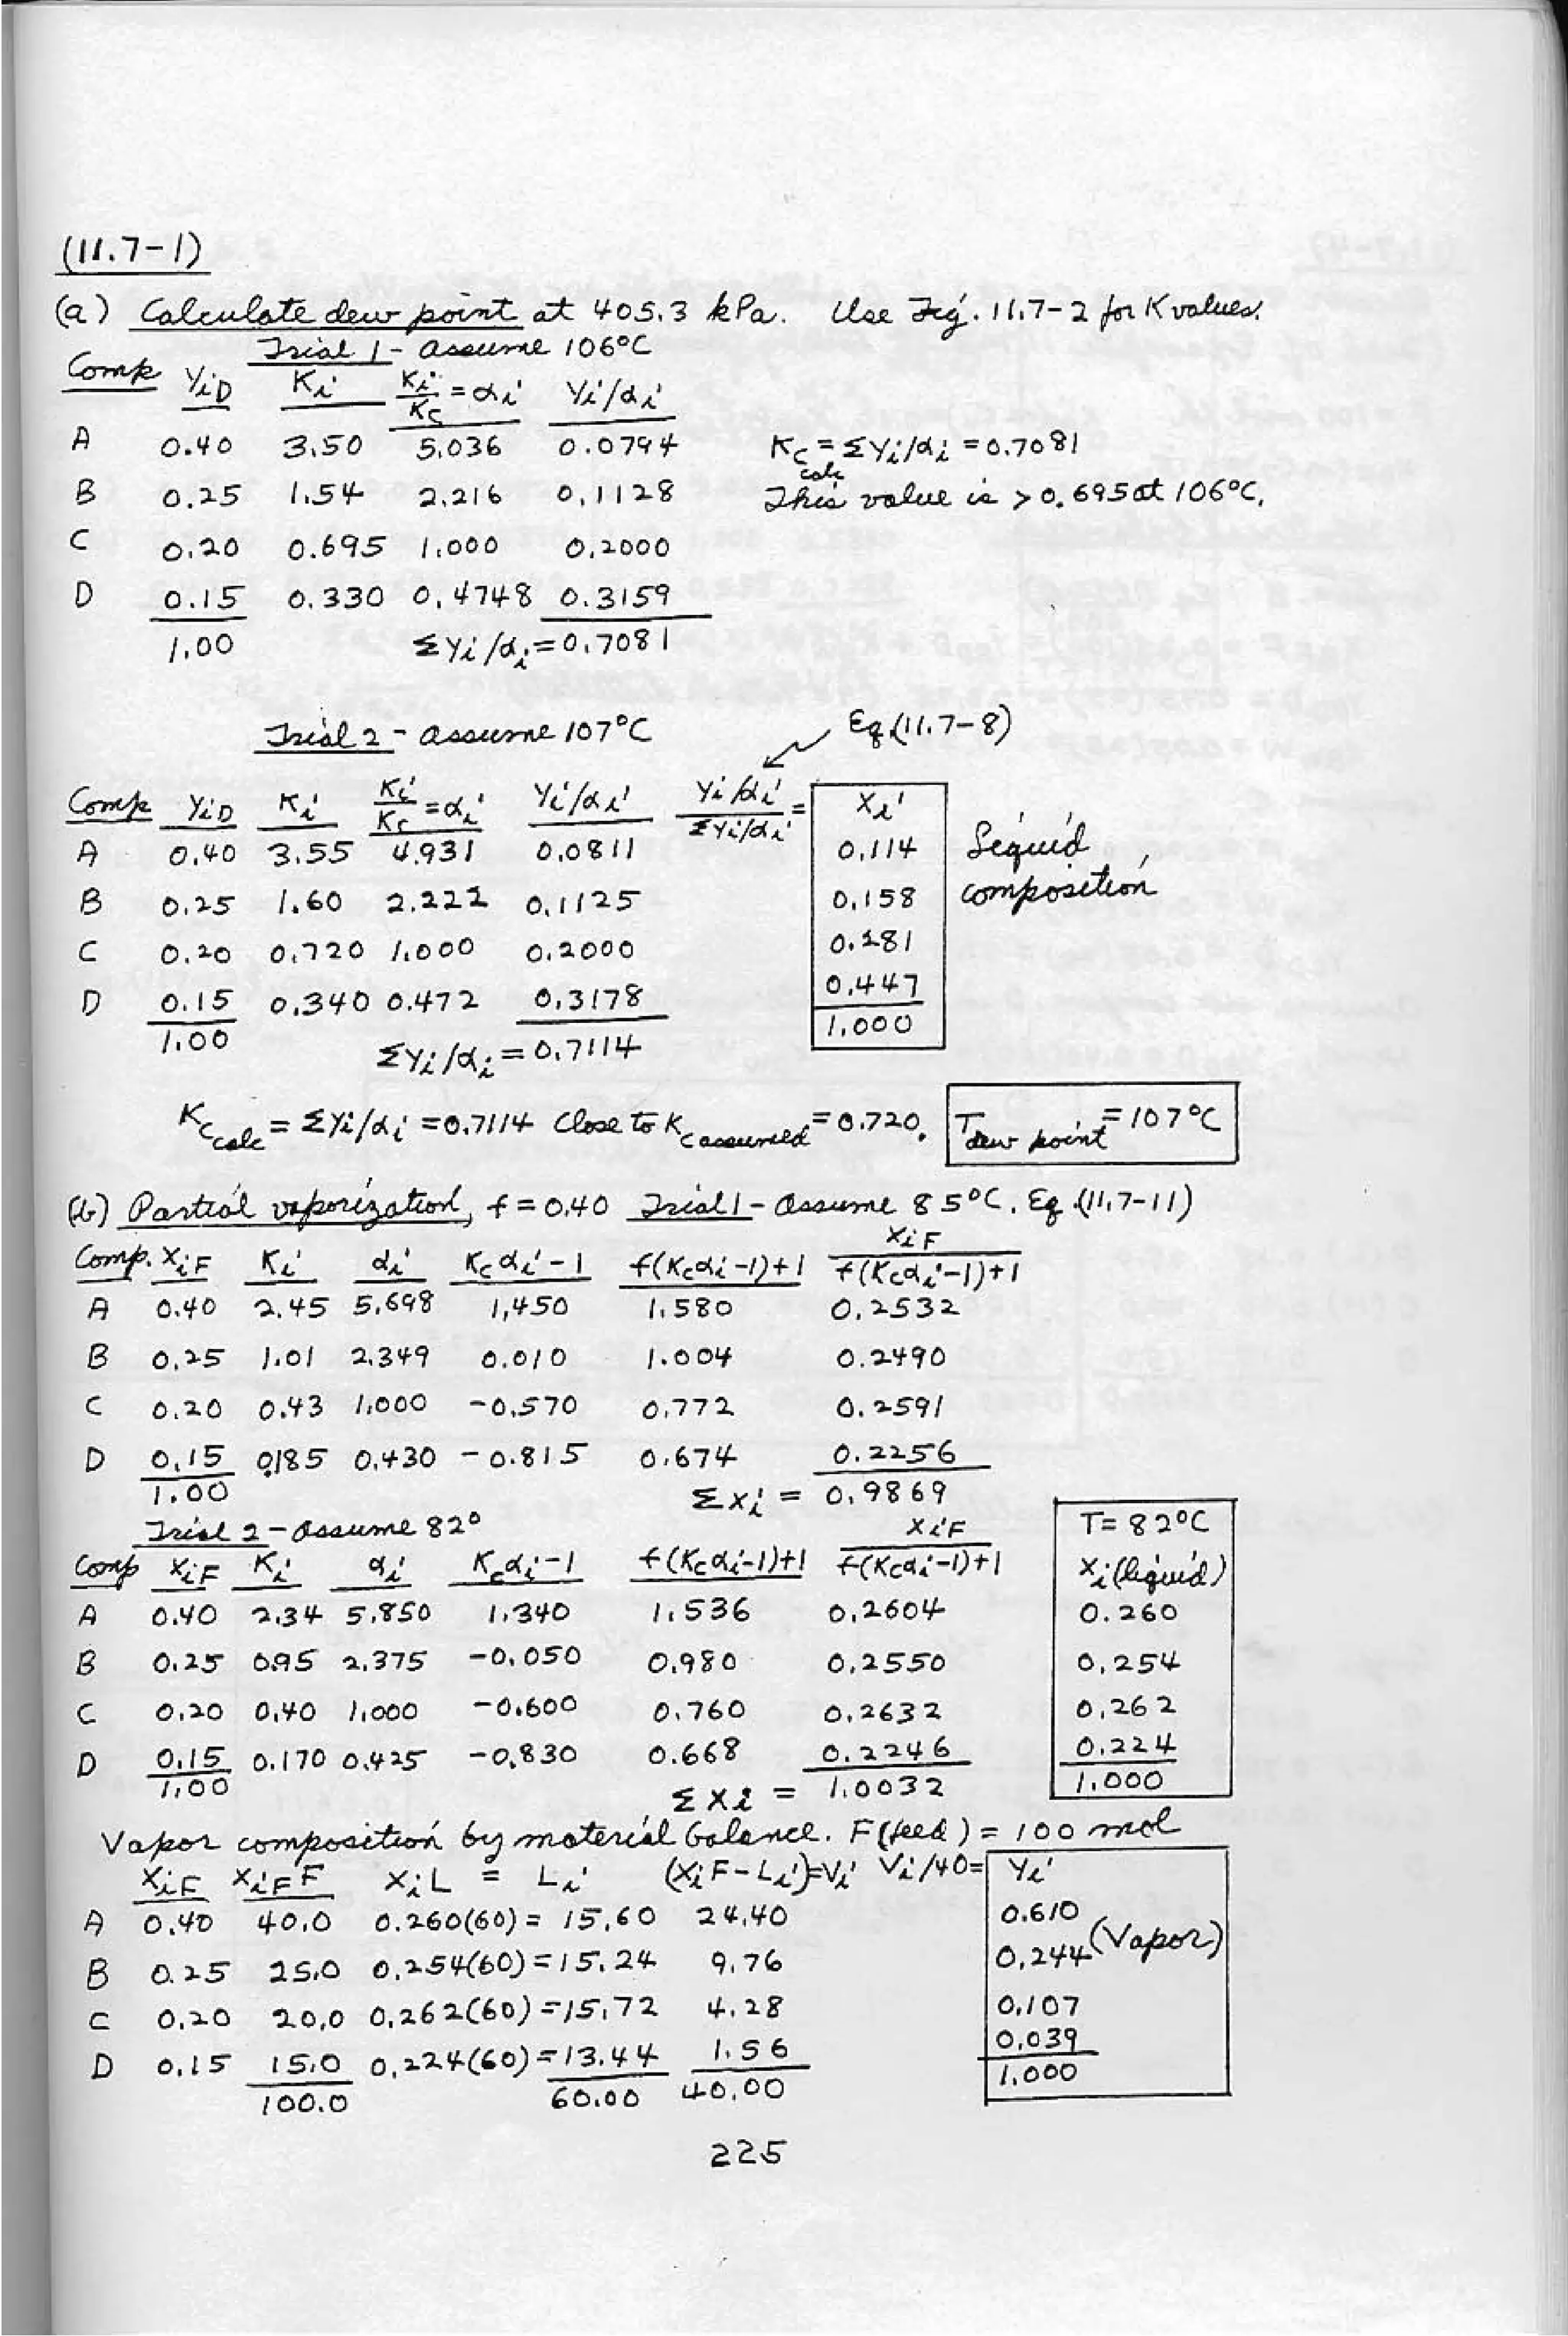 (11.7-1)
(a) Calculate dew point at 405.3 kPa. Use Fig. 11.7-2 for K values.
Trial 1 - Assume 106°C
Comp yiD Ki Ki/Kc = αi yi/αi
A 0.40 3.50 5.036 0.0794 Kc calc = Σyi/αi = 0.7081
B 0.25 1.54 2.216 0.1128 This value is > 0.695 at 106°C.
C 0.20 0.695 1.000 0.2000
D 0.15 0.330 0.4748 0.3159
1.00 Σyi/αi = 0.7081
Trial 2 - Assume 107°C Eq.(11.7-8)
Comp yiD Ki Ki/Kc = αi yi/αi (yi/αi)/(Σyi/αi) = xi
A 0.40 3.55 4.931 0.0811 0.114 Liquid
B 0.25 1.60 2.222 0.1125 0.158 composition
C 0.20 0.720 1.000 0.2000 0.281
D 0.15 0.340 0.472 0.3178 0.447
1.00 Σyi/αi = 0.7114 1.000
Kc calc = Σyi/αi = 0.7114 Close to Kc assumed = 0.720. T dew point = 107°C
(b) Partial vaporization, f = 0.40 Trial 1 - Assume 85°C. Eq.(11.7-11)
Comp. xiF Ki αi Kcαi-1 f(Kcαi-1)+1 xiF/(f(Kcαi-1)+1)
A 0.40 2.45 5.698 1.450 1.580 0.2532
B 0.25 1.01 2.349 0.010 1.004 0.2490
C 0.20 0.43 1.000 -0.570 0.772 0.2591
D 0.15 0.185 0.430 -0.815 0.674 0.2256
1.00 Σxi = 0.9869
Trial 2 - Assume 82° T = 82°C
Comp xiF Ki αi Kcαi-1 f(Kcαi-1)+1 xiF/(f(Kcαi-1)+1) xi(liquid)
A 0.40 2.34 5.850 1.340 1.536 0.2604 0.260
B 0.25 0.95 2.375 -0.050 0.980 0.2550 0.254
C 0.20 0.40 1.000 -0.600 0.760 0.2632 0.262
D 0.15 0.170 0.425 -0.830 0.668 0.2246 0.224
1.00 Σxi = 1.0032 1.000
Vapor composition by material balance. F(feed) = 100 mol
xiF xiF F xiL = Li (xiF-Li)=Vi Vi/40= yi
A 0.40 40.0 0.260(60) = 15.60 24.40 0.610
B 0.25 25.0 0.254(60) = 15.24 9.76 0.244 (Vapor)
C 0.20 20.0 0.262(60) = 15.72 4.28 0.107
D 0.15 15.0 0.224(60) = 13.44 1.56 0.039
100.0 60.00 40.00 1.000
225